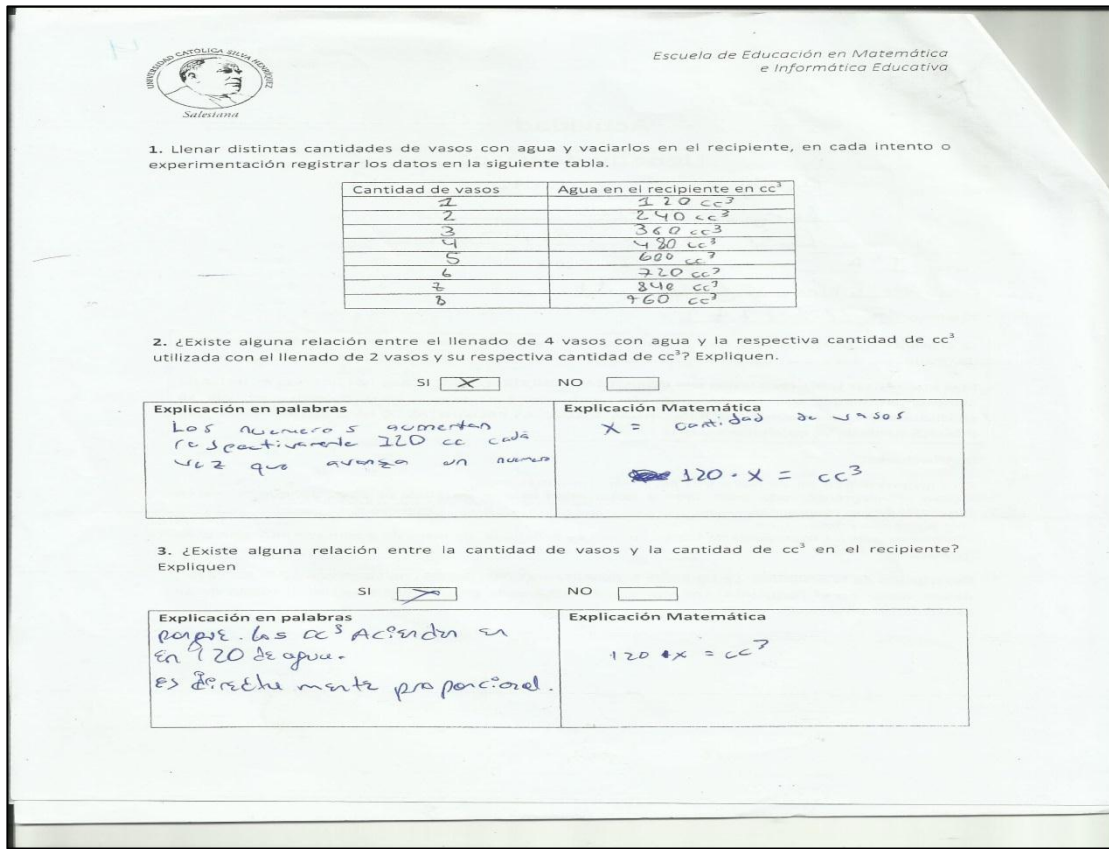 4
UNIVERSIDAD CATOLICA SILVA HENRIQUEZ
Salesiana
Escuela de Educación en Matemática
e Informática Educativa
1. Llenar distintas cantidades de vasos con agua y vaciarlos en el recipiente, en cada intento o
experimentación registrar los datos en la siguiente tabla.
Cantidad de vasos Agua en el recipiente en cc³
1 120 cc³
2 240 cc³
3 360 cc³
4 480 cc³
5 600 cc³
6 720 cc³
7 840 cc³
8 960 cc³
2. ¿Existe alguna relación entre el llenado de 4 vasos con agua y la respectiva cantidad de cc³
utilizada con el llenado de 2 vasos y su respectiva cantidad de cc³? Expliquen.
SI X NO
Explicación en palabras
Los numeros aumentan
respectivamente 120 cc cada
vez que avanza un numero
Explicación Matemática
X = cantidad de vasos
120 · X = cc³
3. ¿Existe alguna relación entre la cantidad de vasos y la cantidad de cc³ en el recipiente?
Expliquen
SI X NO
Explicación en palabras
porque. los cc³ Acienden en
en 120 de agua.
es directamente proporcional.
Explicación Matemática
120 · x = cc³